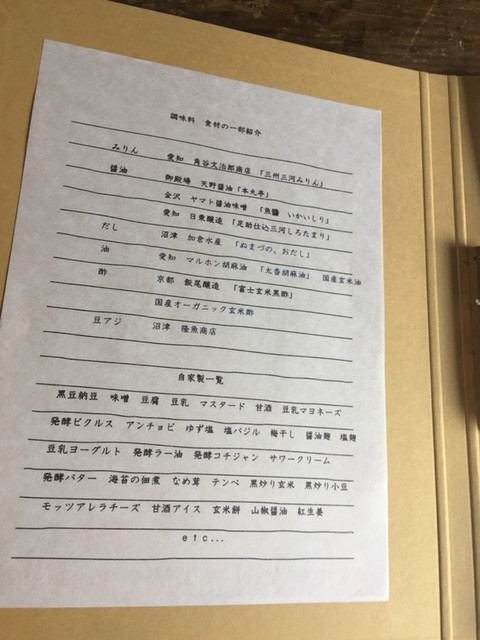 調味料 食材の一部紹介
みりん 愛知 角谷文治郎商店 「三州三河みりん」
醤油 御殿場 天野醤油「本丸亭」
金沢 ヤマト醤油味噌 「魚醤 いかいしり」
愛知 日東醸造 「足助仕込三河しろたまり」
だし 沼津 加倉水産 「ぬまづの、おだし」
油 愛知 マルホン胡麻油 「太香胡麻油」 国産玄米油
酢 京都 飯尾醸造 「富士玄米黒酢」
国産オーガニック玄米酢
豆アジ 沼津 隆魚商店
自家製一覧
黒豆納豆 味噌 豆腐 豆乳 マスタード 甘酒 豆乳マヨネーズ
発酵ピクルス アンチョビ ゆず塩 塩バジル 梅干し 醤油麹 塩麹
豆乳ヨーグルト 発酵ラー油 発酵コチジャン サワークリーム
発酵バター 海苔の佃煮 なめ茸 テンペ 黒炒り玄米 黒炒り小豆
モッツアレラチーズ 甘酒アイス 玄米餅 山椒醤油 紅生姜
etc...